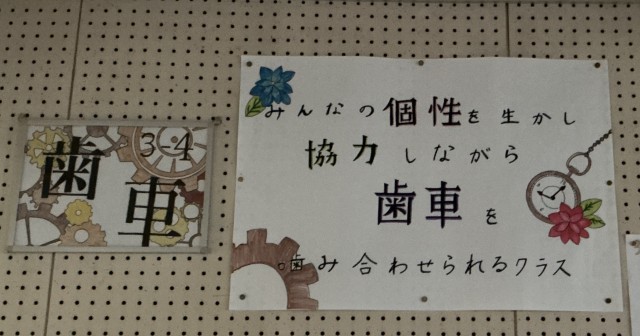 3-4
歯車
みんなの個性を生かし
協力しながら
歯車を
噛み合わせられるクラス